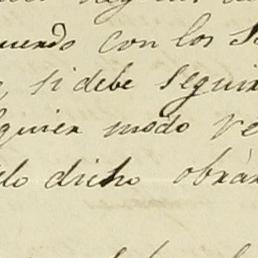 uerdo con los S
, si debe seguir
quier modo ve
lo dicho obrár